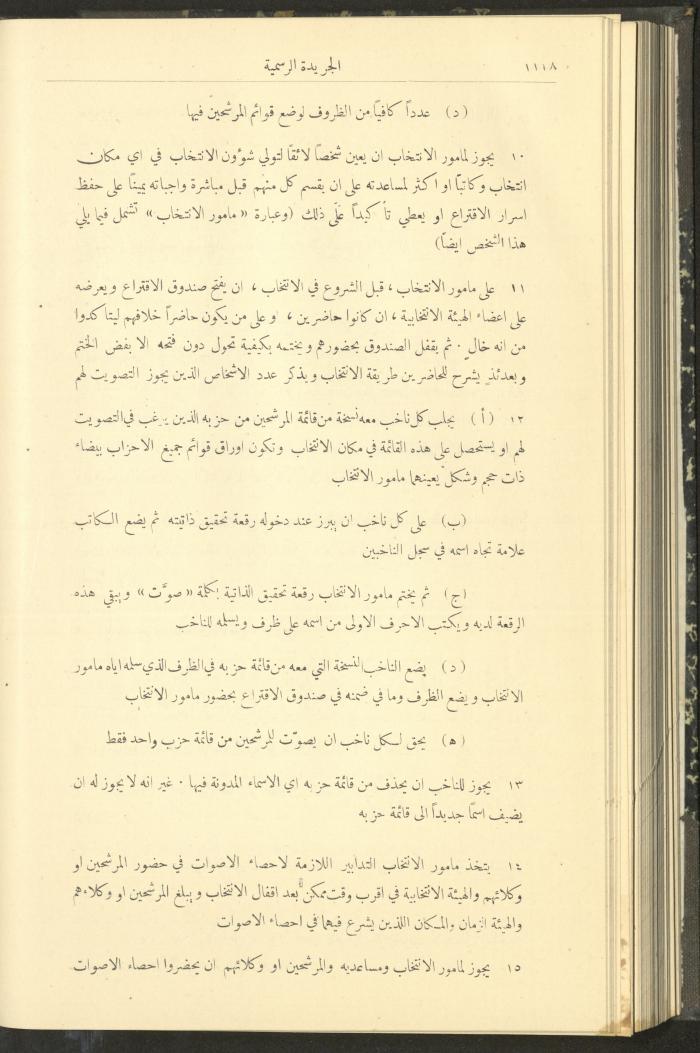 ١١١٨
الجريدة الرسمية
(د) عدداً كافياً من الظروف لوضع قوائم المرشحين فيها
١٠ يجوز لمامور الانتخاب ان يعين شخصاً لائقاً لتولي شوءون الانتخاب في اي مكان
انتخاب وكاتباً او اكثر لمساعدته على ان يقسم كل منهم قبل مباشرة واجباته يميناً على حفظ
اسرار الاقتراع او يعطي تأكيداً على ذلك (وعبارة «مامور الانتخاب» تشمل فيما يلي
هذا الشخص ايضاً)
١١ على مامور الانتخاب، قبل الشروع في الانتخاب، ان يفتح صندوق الاقتراع ويعرضه
على اعضاء الهيئة الانتخابية، ان كانوا حاضرين، وعلى من يكون حاضراً خلافهم ليتاكدوا
من انه خال. ثم يقفل الصندوق بحضورهم ويختمه بكيفية تحول دون فتحه الا بفض الختم
وبعدئذ يشرح للحاضرين طريقة الانتخاب ويذكر عدد الاشخاص الذين يجوز التصويت لهم
١٢ (أ) يجلب كل ناخب معه نسخة من قائمة المرشحين من حزبه الذين يرغب في التصويت
لهم او يستحصل على هذه القائمة في مكان الانتخاب وتكون اوراق قوائم جميع الاحزاب بيضاء
ذات حجم وشكل يعينهما مامور الانتخاب
(ب) على كل ناخب ان يبرز عند دخوله رقعة تحقيق ذاتيته ثم يضع الكاتب
علامة تجاه اسمه في سجل الناخبين
(ج) ثم يختم مامور الانتخاب رقعة تحقيق الذاتية بكلمة «صوَّت» ويبقي هذه
الرقعة لديه ويكتب الاحرف الاولى من اسمه على ظرف ويسلمه للناخب
(د) يضع الناخب النسخة التي معه من قائمة حزبه في الظرف الذي سلمه اياه مامور
الانتخاب ويضع الظرف وما في ضمنه في صندوق الاقتراع بحضور مامور الانتخاب
(ه) يحق لكل ناخب ان يصوّت للمرشحين من قائمة حزب واحد فقط
١٣ يجوز للناخب ان يحذف من قائمة حزبه اي الاسماء المدونة فيها. غير انه لا يجوز له ان
يضيف اسماً جديداً الى قائمة حزبه
١٤ يتخذ مامور الانتخاب التدابير اللازمة لاحصاء الاصوات في حضور المرشحين او
وكلائهم والهيئة الانتخابية في اقرب وقت ممكن بعد اقفال الانتخاب ويبلغ المرشحين او وكلاءهم
والهيئة الزمان والمكان اللذين يشرع فيهما في احصاء الاصوات
١٥ يجوز لمامور الانتخاب ومساعديه والمرشحين او وكلائهم ان يحضروا احصاء الاصوات